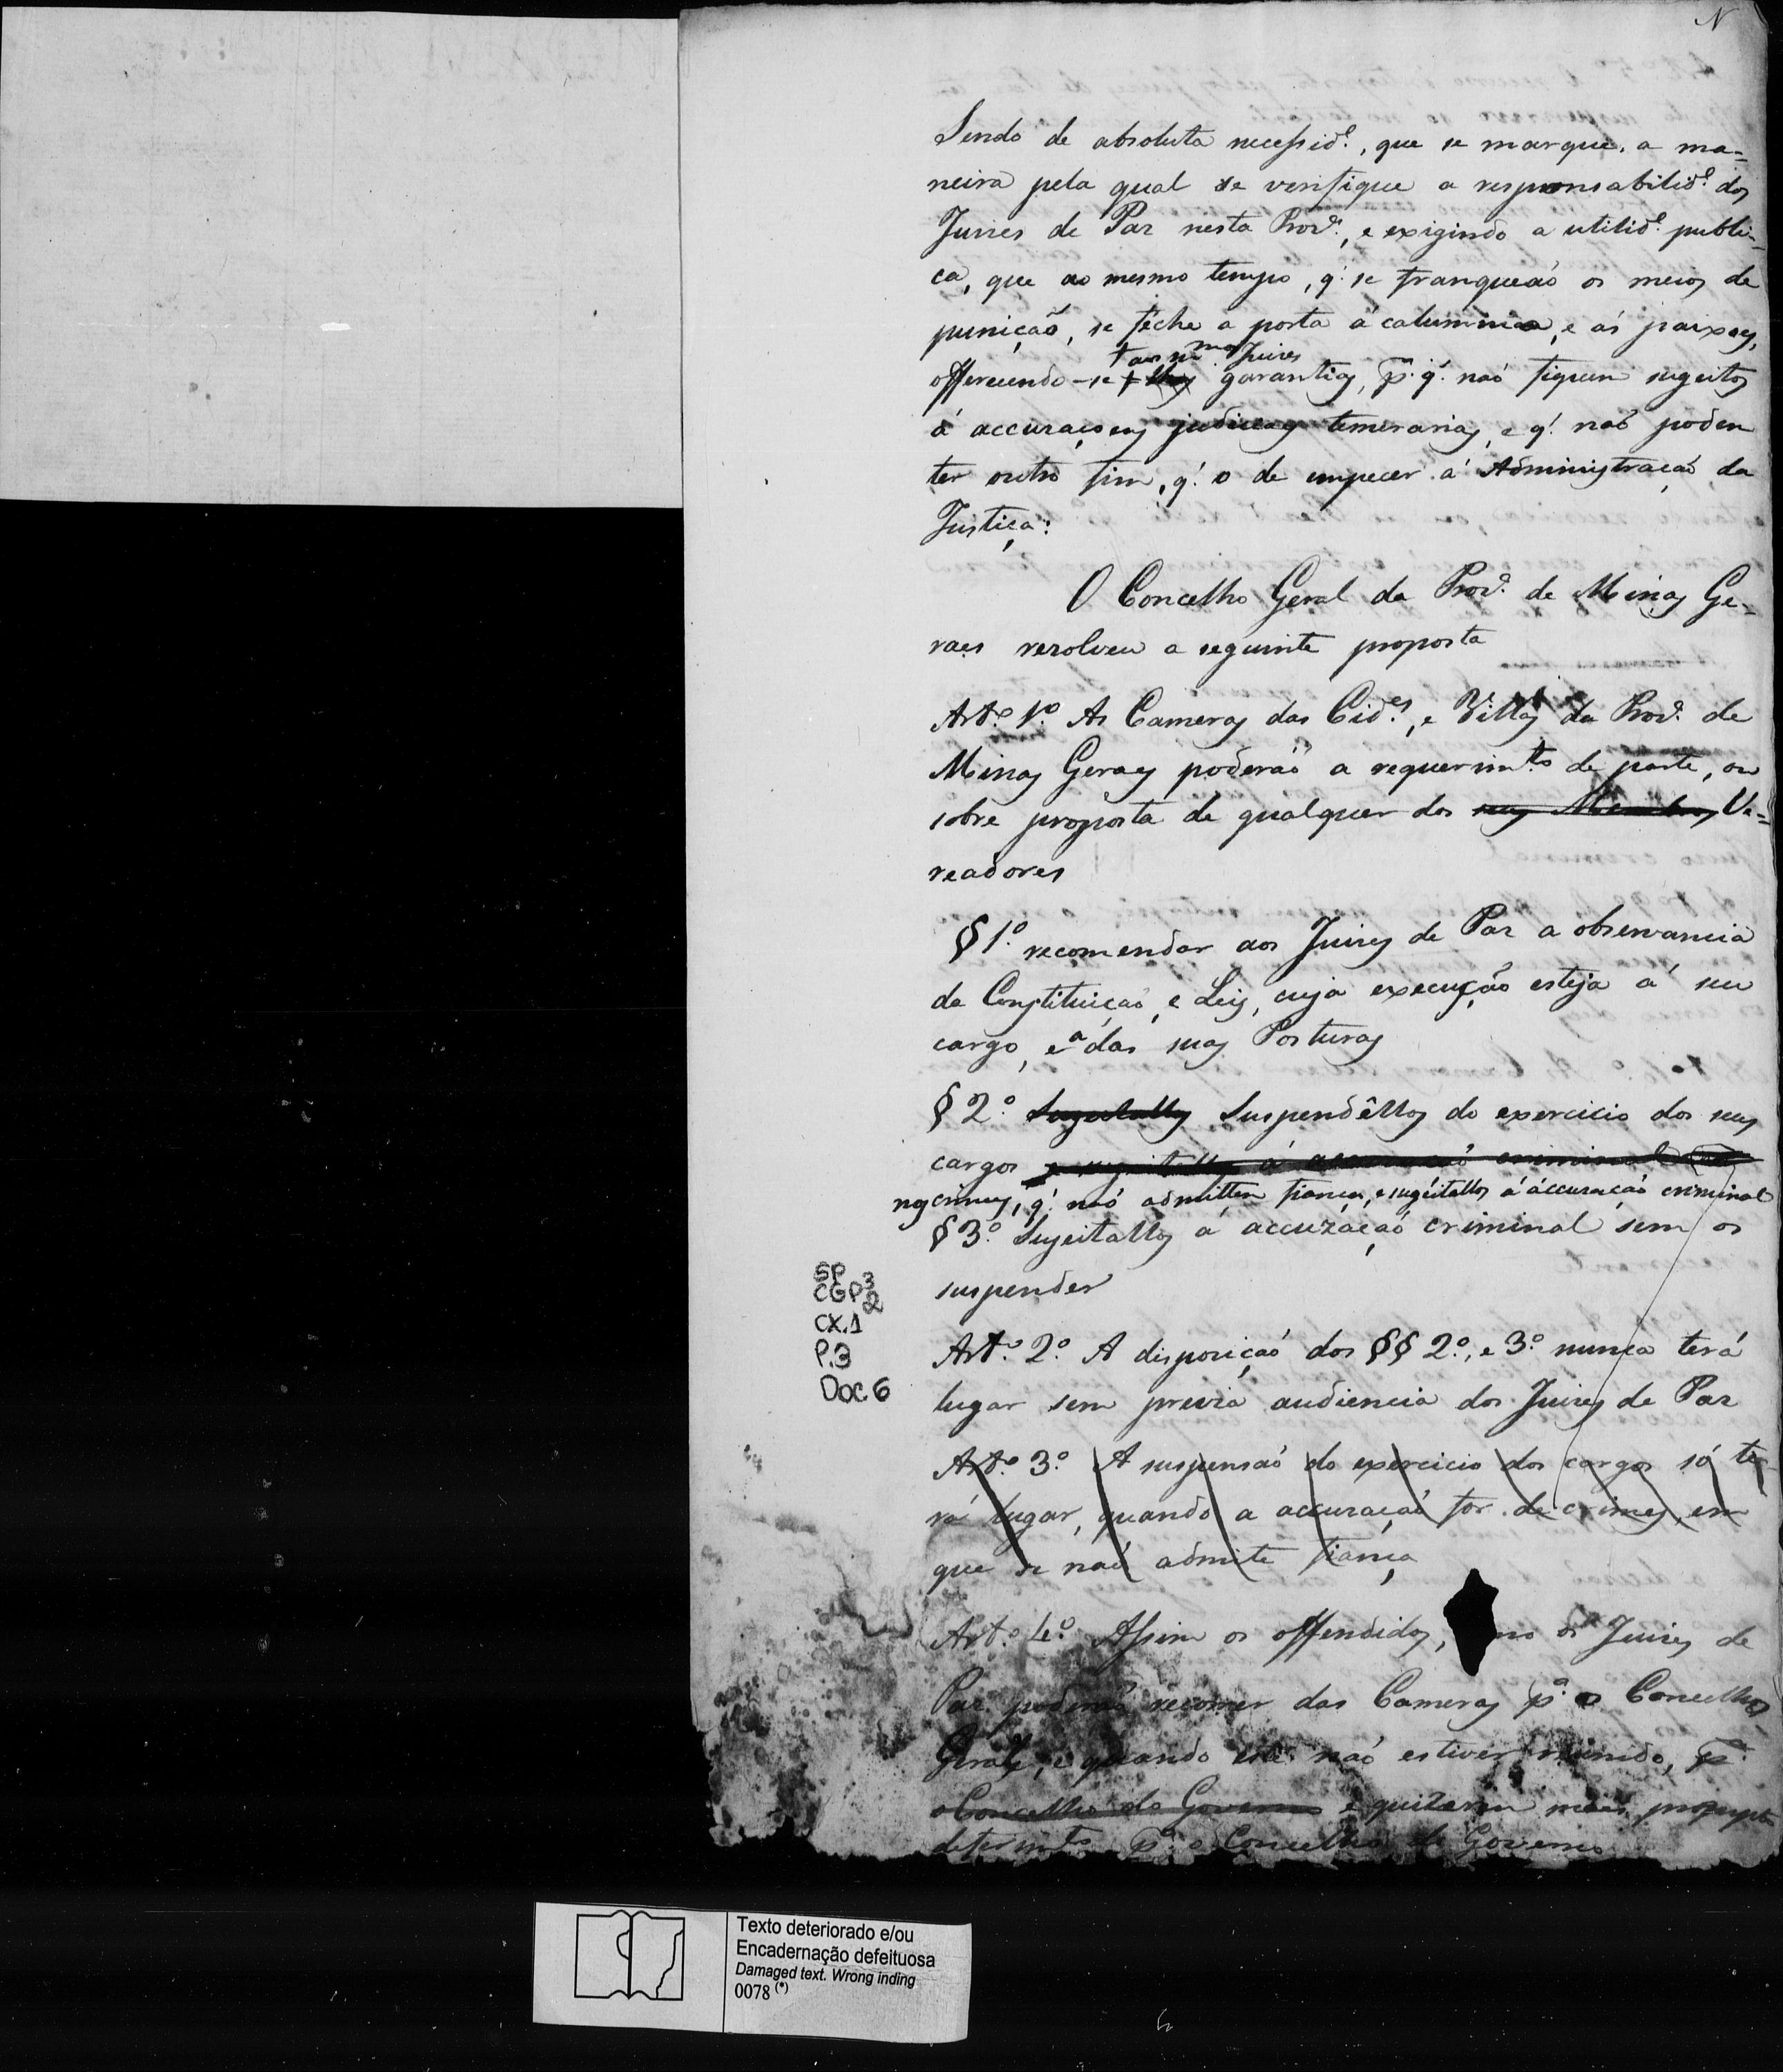 N
Sendo de absoluta necessid.e, que se marque, a ma=
neira pela qual se verifique a responsabilid.e dos
Juizes de Paz nesta Prov.a, e exigindo a utilid.e publi-
ca, que ao mesmo tempo, q' se franqueaõ os meios de
puniçaõ, se féche a porta á calumnia, e ás paixoes,
aos m.mos Juizes
offerecendo-se garantias, p.a q' naõ fiquem sugeitos
á accuzaçoens judiciaes temerarias, e q' naõ podem
ter outro fim, q' o de empecer á Administraçaõ da
Justiça:
O Concelho Geral da Prov.a de Minas Ge=
raes rezolveu a seguinte proposta
Art.o 1.o As Cameras das Cid.es, e Villas da Prov.a de
Minas Geraes poderaõ a requerim.to de parte, ou
sobre proposta de qualquer dos seus Membros Ve=
readores
§ 1.o recomendar aos Juizes de Paz a observancia
da Constituiçaõ, e Leis, cuja execuçaõ esteja á seu
cargo, e a das suas Posturas
§ 2.o Sugeitallos Suspendêllos do exercicio dos seus
cargos e sugeitallos á accuzaçaõ criminal
nos crimes, q' naõ admittem fiança, e sugeitallos á accuzaçaõ criminal
§ 3.o Sugeitallos á accuzaçaõ criminal sem os
suspender
SP
CGP 3
2
CX.1
P.3
Doc 6
Art.o 2.o A disposiçaõ dos §§ 2.o, e 3.o nunca terá
lugar sem previa audiencia dos Juizes de Paz
Art.o 3.o A suspensaõ do exercicio dos cargos só te-
rá lugar, quando a accuzaçaõ for de crimes, em
que se naõ admite fiança
Art.o 4.o Assim os offendidos, mo os Juizes de
Paz poderaõ recorrer das Cameras p.a o Concelho
Geral, e quando este naõ estiver reunido, p.a
o Concelho do Governo e quizerem mais prompto
deferim.to p.a o Concelho do Governo
Texto deteriorado e/ou
Encadernação defeituosa
Damaged text. Wrong inding
0078 (*)